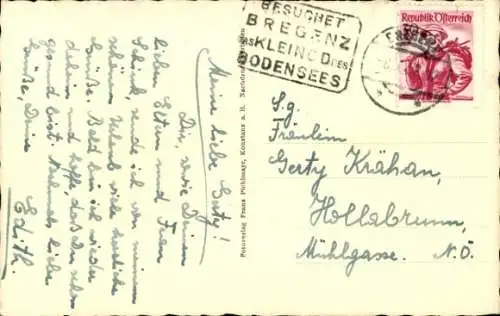 Meine liebe Gerty!
Dir, sowie Deinen
lieben Eltern und Frau
Schink, sende ich von meinem
schönen Urlaub viele herzliche
Grüße. Bald bin ich wieder
daheim und hoffe, daß Du schon
gesund bist. Nochmals liebe
Grüße, Deine
Edith.
BESUCHET
BREGENZ
DAS KLEINOD DES
BODENSEES
Republik Österreich
BREGENZ
Fotoverlag Franz Pichlmayr, Konstanz a. B. Nachdruck verboten
S.g.
Fräulein
Gerty Krähan,
Hollabrunn,
Mühlgasse. N.Ö.